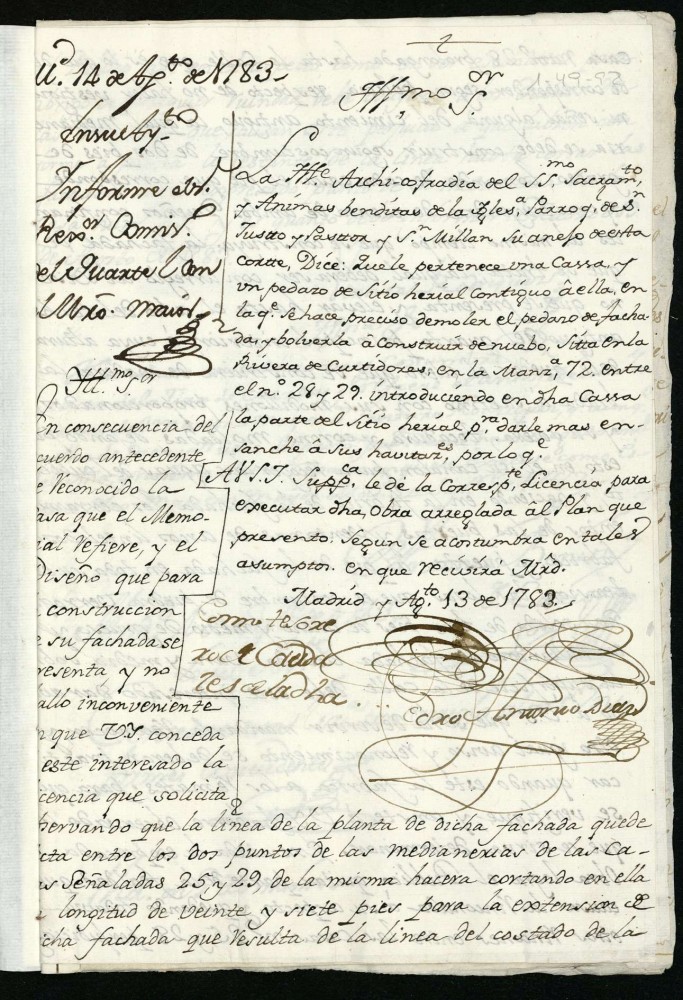 2
1-49-97
M.d 14 de Ag.to de 1783
Yll.mo S.or
En su Ay.to
Informe el S.
Rex.or Comis.o
del Quartel con
el Mro. maior
La Yll.e Archi-cofradia del SS.mo Sacram.to
y Animas benditas de la Ygles.a Parroq. de S.n
Justo y Pasttor y S.n Millan, su anejo de esta
cortte, Dice: Que le pertenece una Cassa, y
un pedazo de Sitio herial contiguo â ella, en
la q.e se hace preciso demoler el pedazo de facha-
da, y bolverla â construir de nuebo, Sitta en la
Rivera de Curtidores, en la Manz.a 72. entre
el n.o 28 y 29. introduciendo en dha Cassa
la parte del Sitio herial p.ra darle mas en-
sanche â sus havitaz.es, por lo q.e
A V S. I. Supp.ca le dé la Corresp.te Licencia para
executar dha, obra arreglada âl Plan que
presento. Segun se acostumbra en tales
asumptos. en que recivirá Mrd.
Madrid y Ag.to 13 de 1783.
Como the
de la dha.
Pedro Antonio Diaz
Yll.mo S.or
En consecuencia del
cuerdo antecedente
é reconocido la
asa que el Memo-
ial refiere, y el
Diseño que para
construccion
e su fachada se
resenta y no
allo inconveniente
n que VS. conceda
este interesado la
icencia que solicita
bservando que la linea de la planta de dicha fachada quede
cta entre los dos puntos de las medianerias de las Ca-
as Señaladas 25, y 29, de la misma hacera cortando en ella
longitud de veinte y siete pies para la extension de
icha fachada que resulta de la linea del costado de la